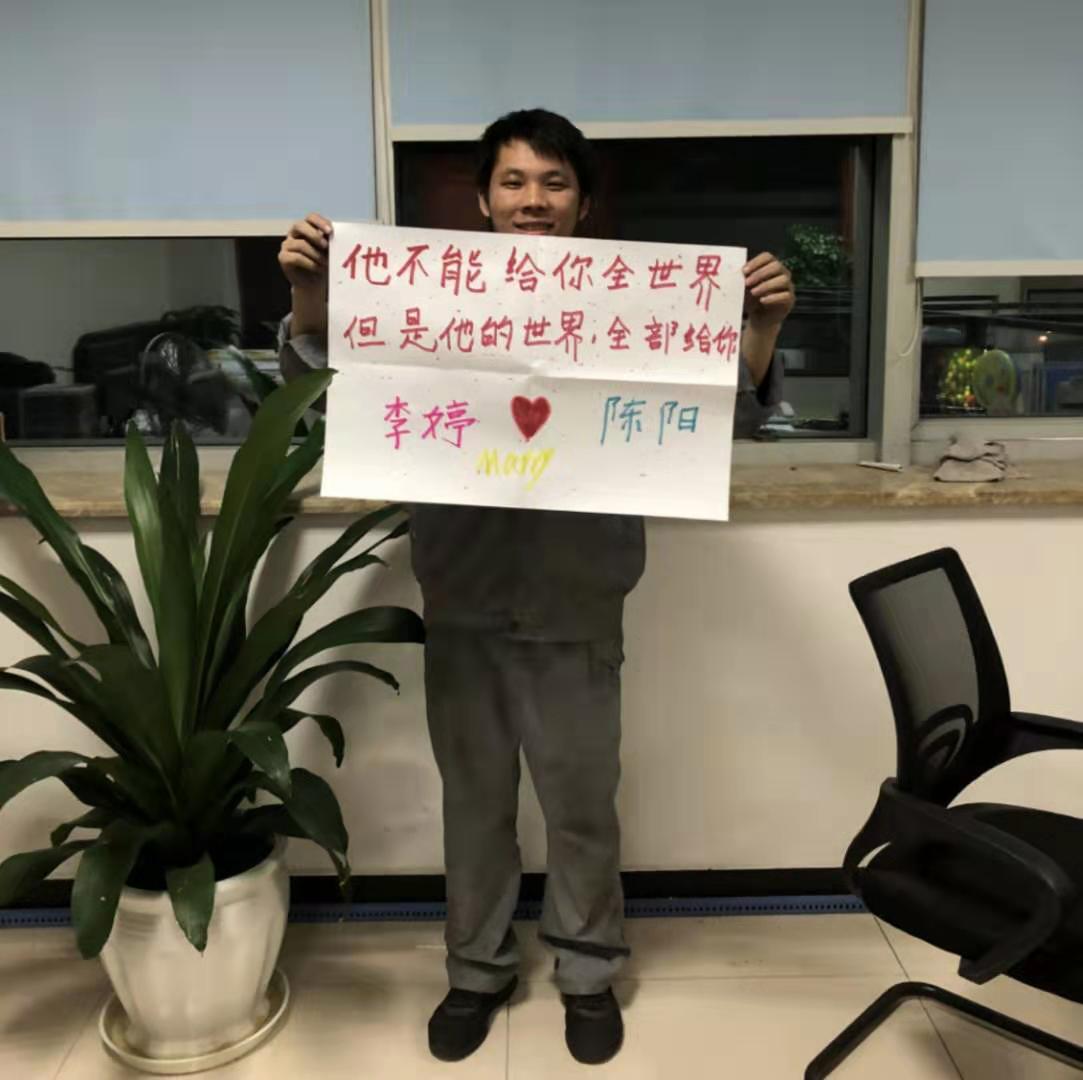 他不能给你全世界
但是他的世界,全部给你
李婷 ♥ 陈阳
Marry